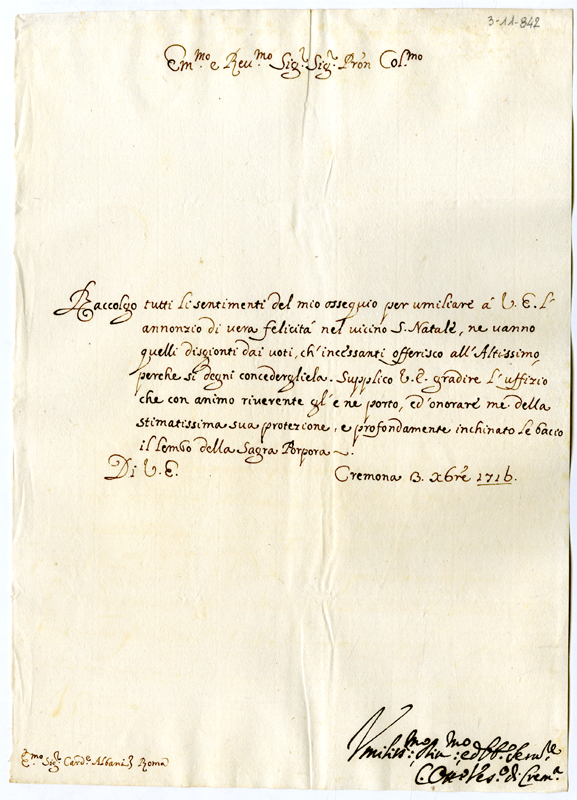 3-11-842
Em.mo e Reu.mo Sig.r Sig.r Prõn Col.mo
Raccolgo tutti li sentimenti del mio ossequio per umiliare à V. E. l'
annonzio di vera felicità nel vicino S. Natale, ne vanno
quelli disgionti dai voti, ch'incessanti offerisco all'Altissimo,
perche si degni concedergliela. Supplico V. E. gradire l'uffizio
che con animo riverente gl'e ne porto, ed'onorare me della
stimatissima sua protezione, e profondamente inchinato le baccio
il lembo della Sagra Porpora
Di V. E. Cremona 13. Xbre 1716.
Vmiliss.mo ed
di Crem.a
E.mo Sig.r Card.e Albani Roma